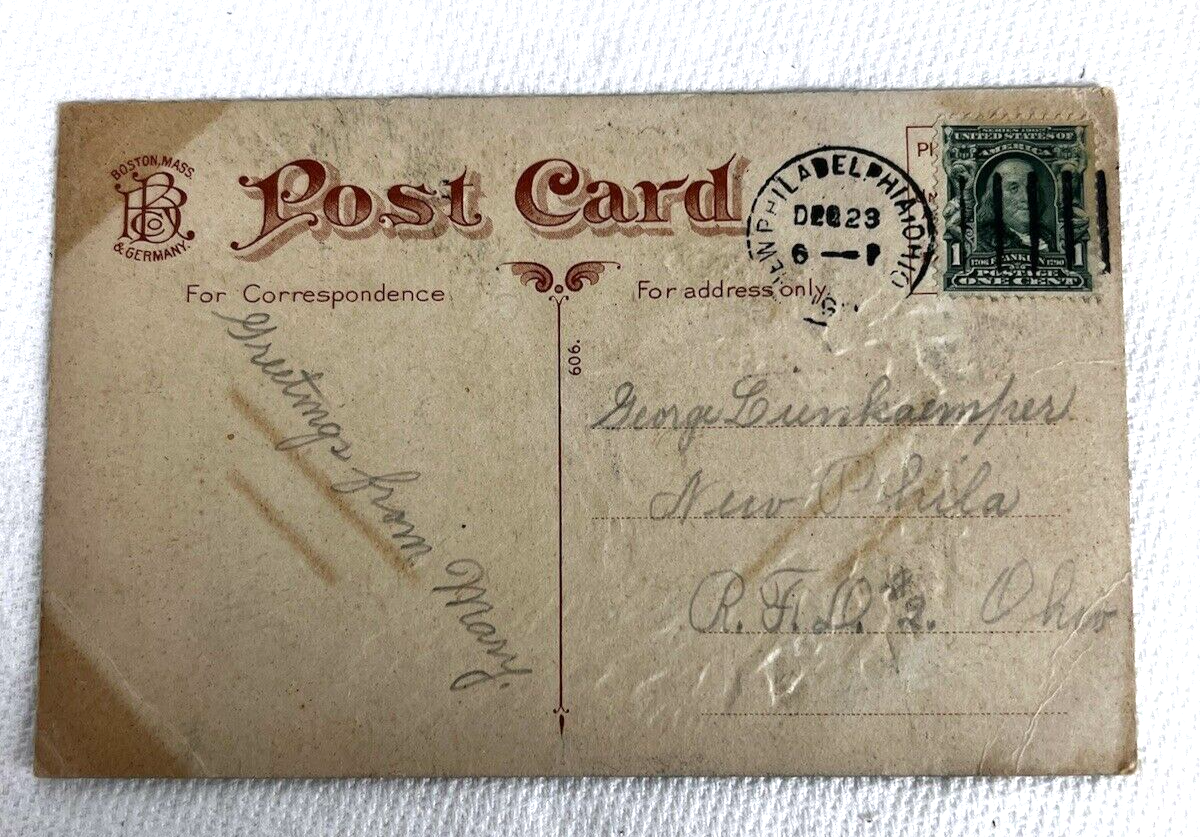 BOSTON, MASS.
B B Co
& GERMANY.
Post Card
For Correspondence
For address only.
606.
NEW PHILADELPHIA, OHIO
DEC 23
6 — P
SERIES 1902
UNITED STATES OF
AMERICA
1 1
1706 FRANKLIN 1790
POSTAGE
ONE CENT
Greetings from Mary.
George Lunkaemper
New Phila
R.F.D. #2. Ohio